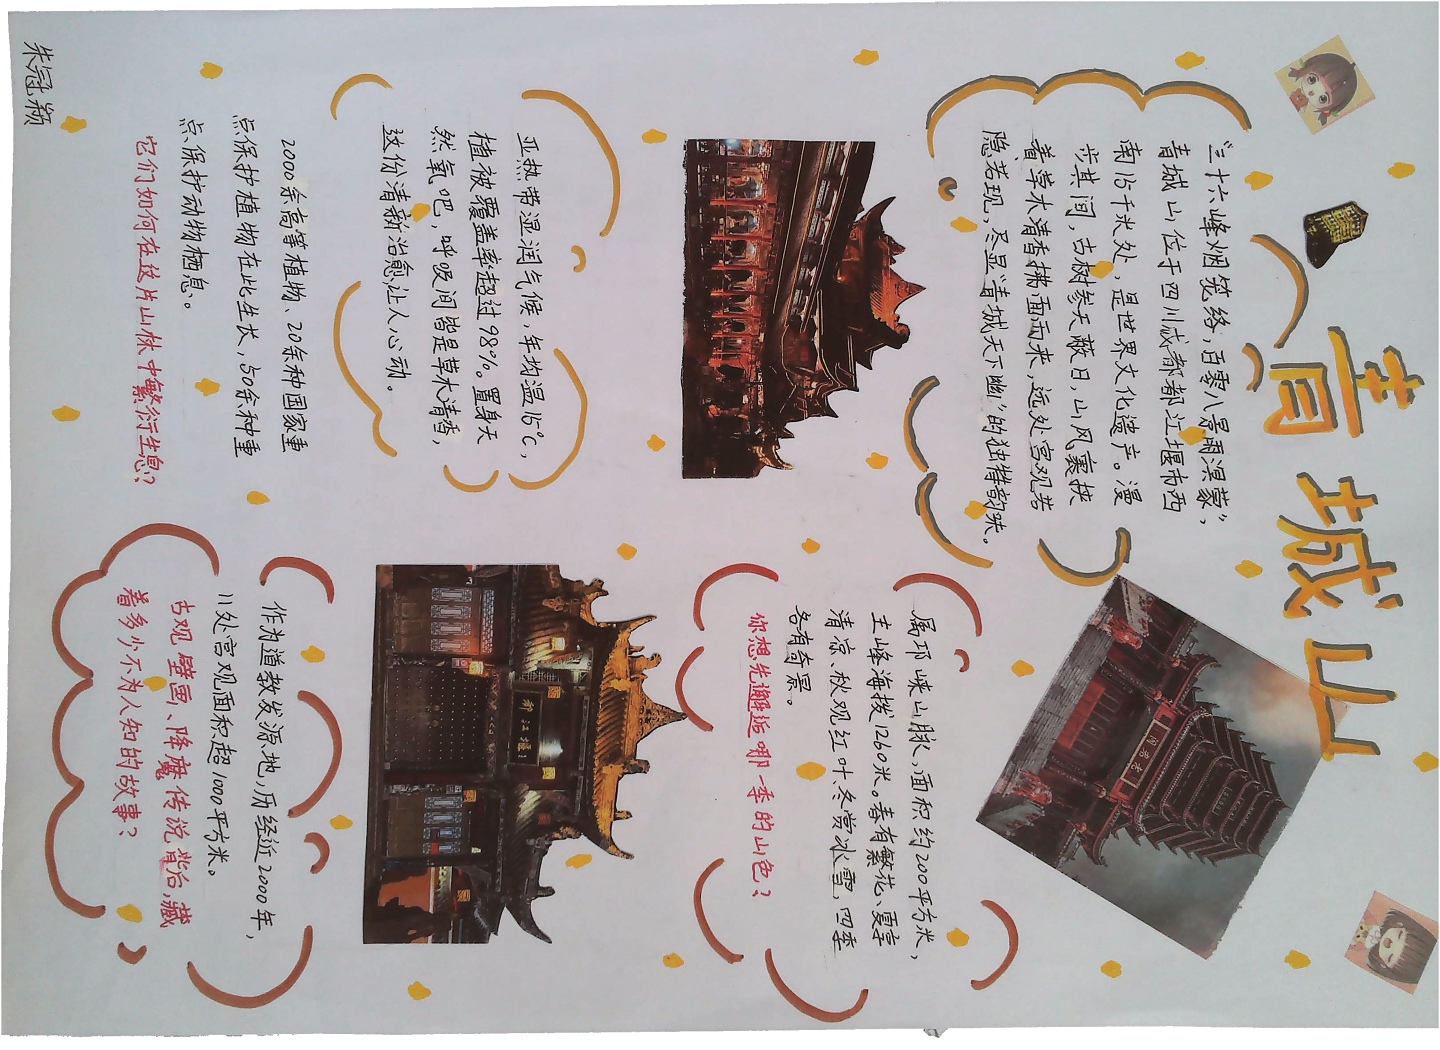 青城山
“三十六峰烟笼络，百零八景雨溟蒙”，
青城山位于四川成都都江堰市西
南15千米处，是世界文化遗产。漫
步其间，古树参天蔽日，山风裹挟
着草木清香拂面而来，远处宫观若
隐若现，尽显“青城天下幽”的独特韵味。
属邛崃山脉，面积约200平方米，
主峰海拨1260米。春有繁花、夏享
清凉、秋观红叶、冬赏冰雪，四季
各有奇景。
你想先邂逅哪一季的山色？
亚热带湿润气候，年均温15℃，
植被覆盖率超过98%。置身天
然氧吧，呼吸间皆是草木清香，
这份清新治愈，让人心动。
2000余高等植物、20余种国家重
点保护植物在此生长，50余种重
点保护动物栖息。
它们如何在这片山林中繁衍生息？
作为道教发源地，历经近2000年，
11处宫观面积超1000平方米。
古观壁画、降魔传说皆沿，藏
着多少不为人知的故事？
都江堰
朱冠颖